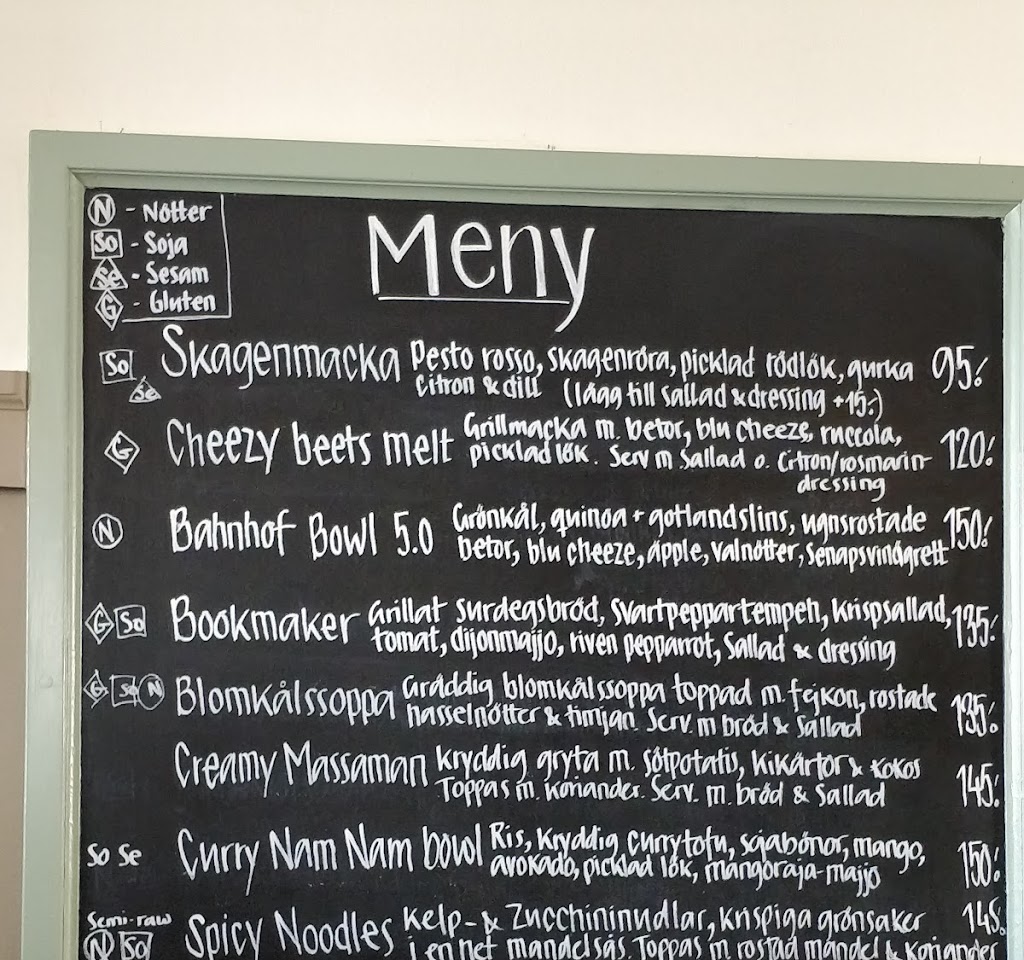 N - Nötter
So - Soja
Se - Sesam
G - Gluten
Meny
So Se Skagenmacka Pesto rosso, skagenröra, picklad rödlök, gurka 95:-
citron & dill (lägg till sallad & dressing +15:-)
G Cheezy beets melt Grillmacka m. betor, blu cheeze, ruccola, 120:-
picklad lök. Serv m Sallad o. Citron/rosmarin-
dressing
N Bahnhof Bowl 5.0 Grönkål, quinoa + gotlandslins, ugnsrostade 150:-
betor, blu cheeze, äpple, valnötter, senapsvinägrett
G So Bookmaker Grillat surdegsbröd, svartpeppartempeh, krispsallad, 135:-
tomat, dijonmajjo, riven pepparrot, Sallad & dressing
G So N Blomkålssoppa Gräddig blomkålssoppa toppad m. fejkon, rostade 135:-
hasselnötter & timjan. Serv. m bröd & Sallad
Creamy Massaman kryddig gryta m. sötpotatis, kikärtor & kokos 145:-
Toppas m. koriander. Serv. m. bröd & Sallad
So Se Curry Nam Nam bowl Ris, kryddig currytofu, sojabönor, mango, 150:-
avokado, picklad lök, mangoraja-majjo
Semi-raw
N So Spicy Noodles Kelp- & Zucchininudlar, krispiga grönsaker 145:
i en het mandelsås. Toppas m rostad mandel & Koriander